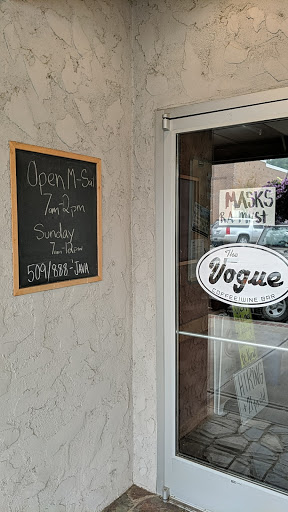 Open M-Sat
7am-2pm
Sunday
7am-12pm
509/888-JAVA
MASKS
R A MUST
The
Vogue
COFFEE|WINE BAR
HIRING